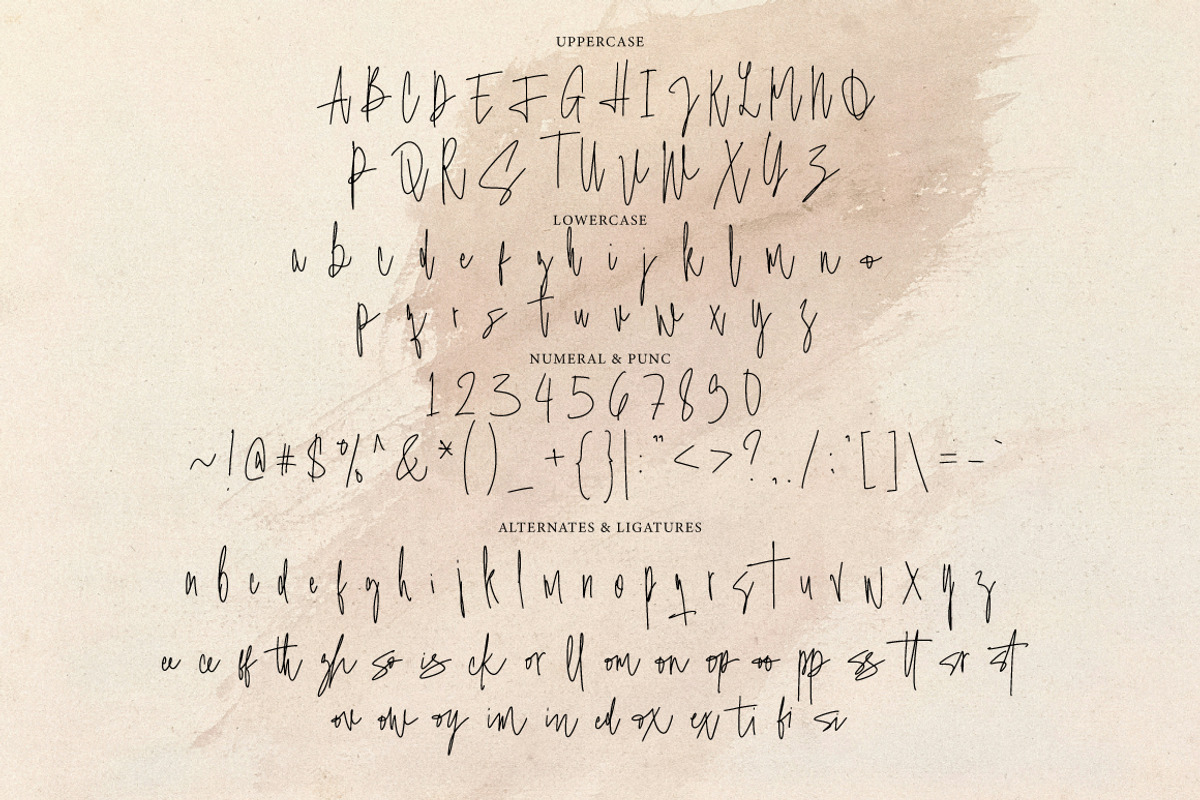 UPPERCASE
A B C D E F G H I J K L M N O
P Q R S T U V W X Y Z
LOWERCASE
a b c d e f g h i j k l m n o
p q r s t u v w x y z
NUMERAL & PUNC
1 2 3 4 5 6 7 8 9 0
~ ! @ # $ % ^ & * ( ) _ + { } | : " < > ? , . / ; ' [ ] \ = - `
ALTERNATES & LIGATURES
a b c d e f g h i j k l m n o p q r s t u v w x y z
ee ce ff th gh so is ck or ll om on op oo pp ss tt sr st
ov ow oy im in ed ox ex ti fi si